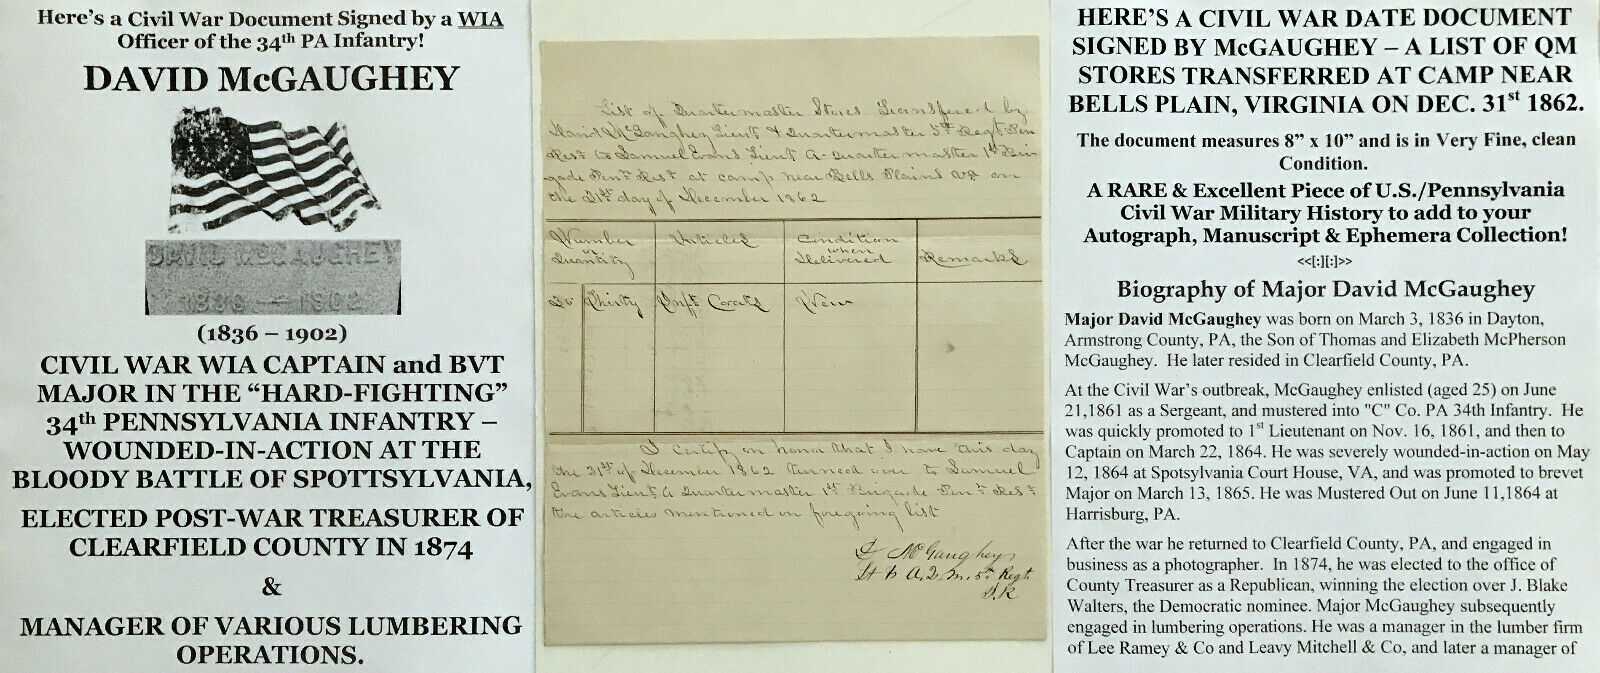 Here's a Civil War Document Signed by a WIA
Officer of the 34th PA Infantry!
DAVID McGAUGHEY
DAVID McGAUGHEY
1836 — 1902
(1836 – 1902)
CIVIL WAR WIA CAPTAIN and BVT
MAJOR IN THE "HARD-FIGHTING"
34th PENNSYLVANIA INFANTRY –
WOUNDED-IN-ACTION AT THE
BLOODY BATTLE OF SPOTTSYLVANIA,
ELECTED POST-WAR TREASURER OF
CLEARFIELD COUNTY IN 1874
&
MANAGER OF VARIOUS LUMBERING
OPERATIONS.
List of Quartermaster Stores Transfered by
David McGaughey Lieut & Quartermaster 5th Regt Pen
Rest to Samuel Evans Lieut A. Quartermaster 1st Bri-
gade Pena Rest at camp near Bells Plains Va on
the 31st day of December 1862
Number or Quantity
Articles
Condition when Delivered
Remarks
30 Thirty
Coats
New
I certify on honor that I have this day
the 31st of December 1862 turned over to Samuel
Evans Lieut A Quartermaster 1st Brigade Pena Rest
the articles mentioned on foregoing list
D McGaughey
Lt & A.Q.M. 5th Regt
P.R
HERE'S A CIVIL WAR DATE DOCUMENT
SIGNED BY McGAUGHEY – A LIST OF QM
STORES TRANSFERRED AT CAMP NEAR
BELLS PLAIN, VIRGINIA ON DEC. 31st 1862.
The document measures 8" x 10" and is in Very Fine, clean
Condition.
A RARE & Excellent Piece of U.S./Pennsylvania
Civil War Military History to add to your
Autograph, Manuscript & Ephemera Collection!
<<[:][:]>>
Biography of Major David McGaughey
Major David McGaughey was born on March 3, 1836 in Dayton,
Armstrong County, PA, the Son of Thomas and Elizabeth McPherson
McGaughey. He later resided in Clearfield County, PA.
At the Civil War's outbreak, McGaughey enlisted (aged 25) on June
21,1861 as a Sergeant, and mustered into "C" Co. PA 34th Infantry. He
was quickly promoted to 1st Lieutenant on Nov. 16, 1861, and then to
Captain on March 22, 1864. He was severely wounded-in-action on May
12, 1864 at Spotsylvania Court House, VA, and was promoted to brevet
Major on March 13, 1865. He was Mustered Out on June 11,1864 at
Harrisburg, PA.
After the war he returned to Clearfield County, PA, and engaged in
business as a photographer. In 1874, he was elected to the office of
County Treasurer as a Republican, winning the election over J. Blake
Walters, the Democratic nominee. Major McGaughey subsequently
engaged in lumbering operations. He was a manager in the lumber firm
of Lee Ramey & Co and Leavy Mitchell & Co, and later a manager of